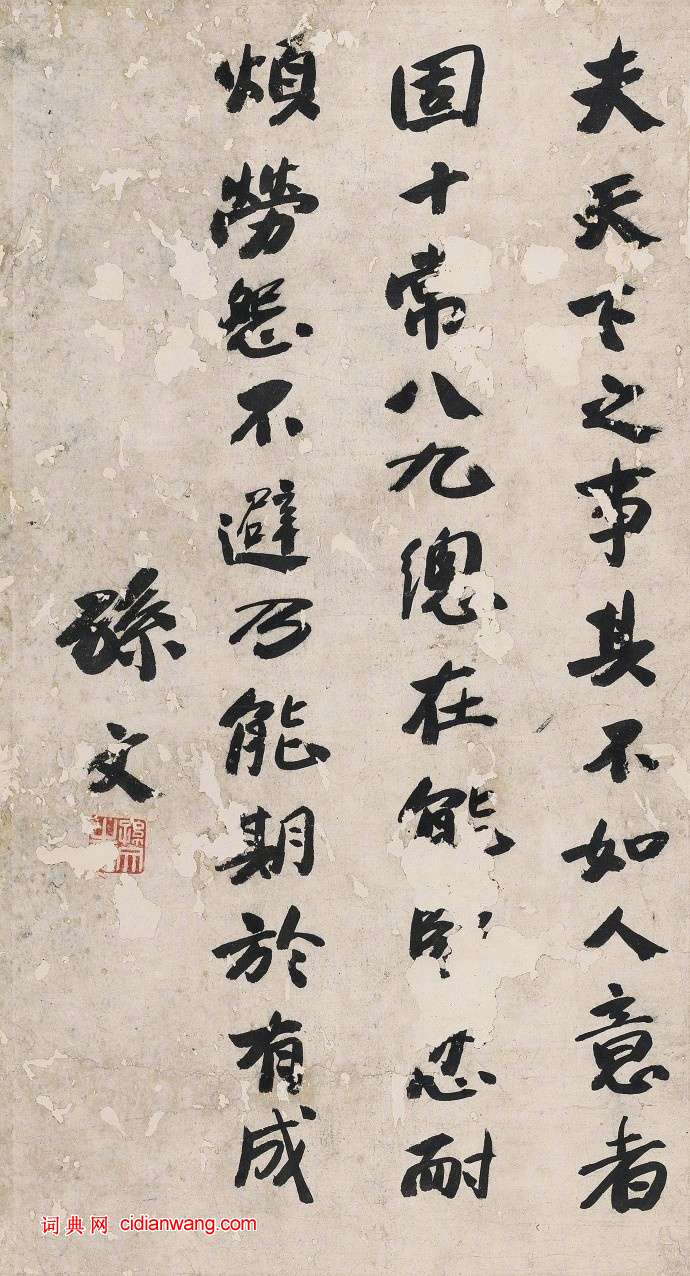 夫天下之事其不如人意者
固十常八九總在能堅忍耐
煩勞怨不避乃能期於有成
孫文
词典网 cidianwang.com